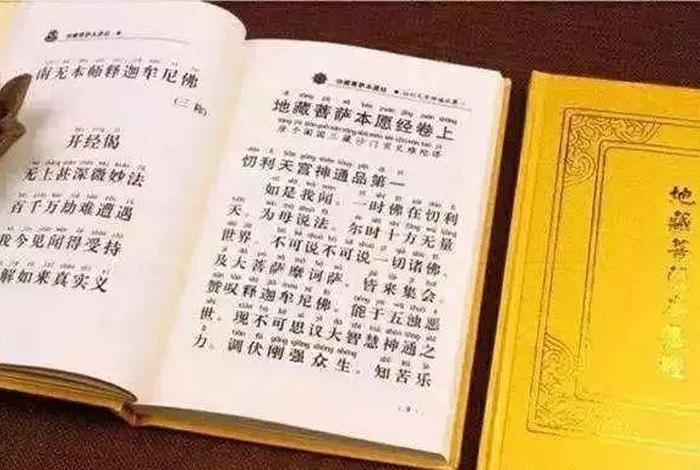 地藏菩萨本愿经
南无本师释迦牟尼佛
（三称）
开经偈
无上甚深微妙法
百千万劫难遭遇
我今见闻得受持
解如来真实义
地藏菩萨本愿经
地藏菩萨本愿经卷上
唐于阗国三藏沙门实叉难陀译
忉利天宫神通品第一
如是我闻。一时佛在忉利
天。为母说法。尔时十方无量
世界。不可说不可说一切诸佛，
及大菩萨摩诃萨。皆来集会。
赞叹释迦牟尼佛。能于五浊恶
世。现不可思议大智慧神通之
力。调伏刚强众生。知苦乐
9
地藏菩萨本愿经